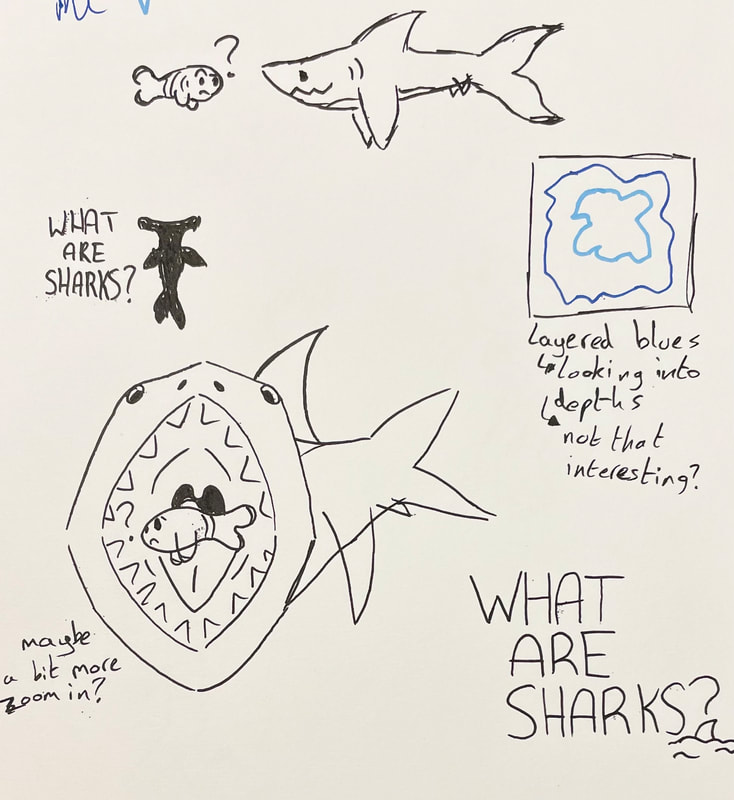 ?
WHAT
ARE
SHARKS?
Layered blues
looking into
depths
not that
interesting?
?
maybe
a bit more
zoom in?
WHAT
ARE
SHARKS?